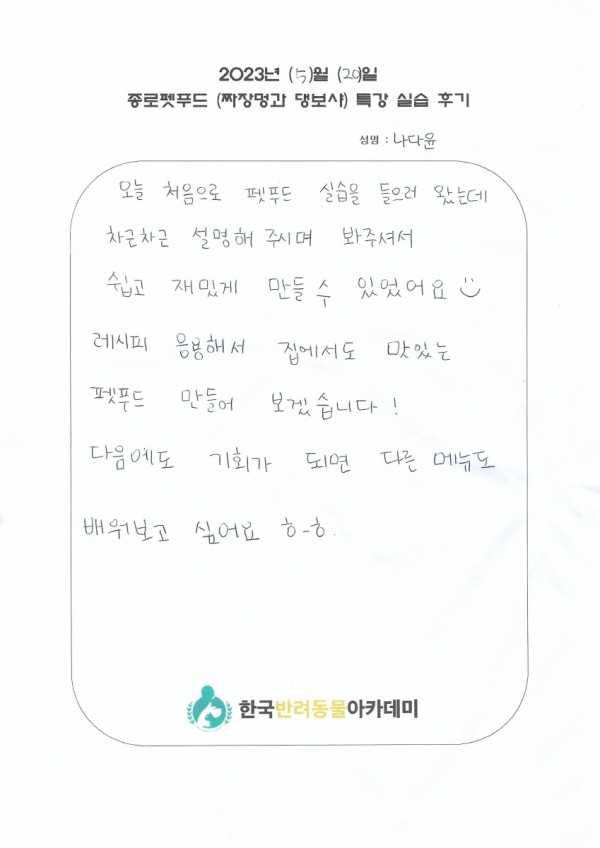 2023년 (5)월 (20)일
종로펫푸드 (짜장멍과 댕보샤) 특강 실습 후기
성명 : 나다윤
오늘 처음으로 펫푸드 실습을 들으러 왔는데
차근차근 설명해 주시며 봐주셔서
쉽고 재밌게 만들 수 있었어요
레시피 응용해서 집에서도 맛있는
펫푸드 만들어 보겠습니다!
다음에도 기회가 되면 다른 메뉴도
배워보고 싶어요 ㅎ-ㅎ
한국반려동물아카데미